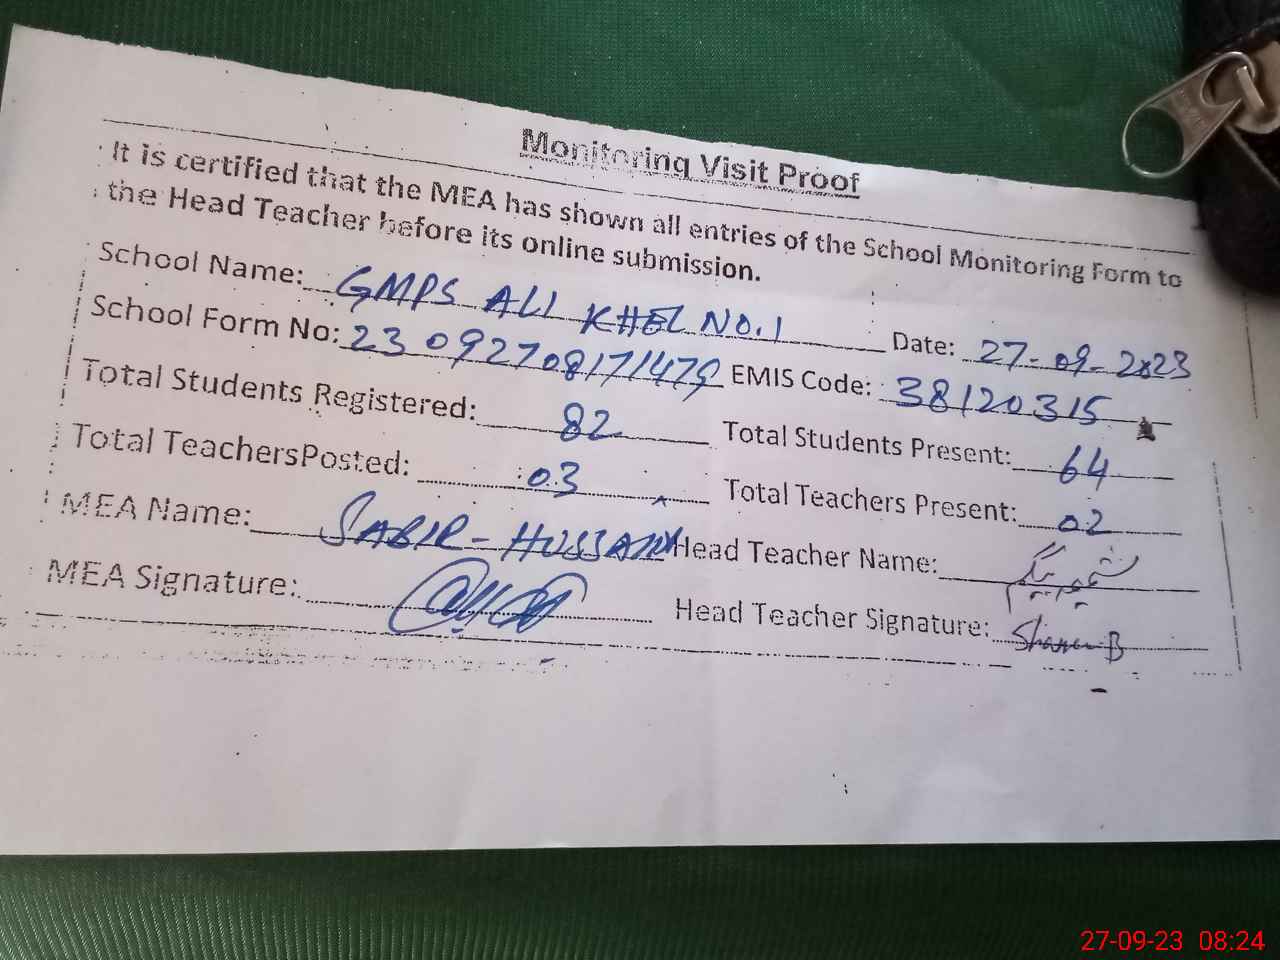 Monitoring Visit Proof
It is certified that the MEA has shown all entries of the School Monitoring Form to
the Head Teacher before its online submission.
School Name: GMPS ALI KHEL NO.1 Date: 27-09-2023
School Form No: 23092708171479 EMIS Code: 38120315
Total Students Registered: 82 Total Students Present: 64
Total TeachersPosted: 03 Total Teachers Present: 02
MEA Name: SABIR-HUSSAIN Head Teacher Name:
MEA Signature: Head Teacher Signature:
27-09-23 08:24